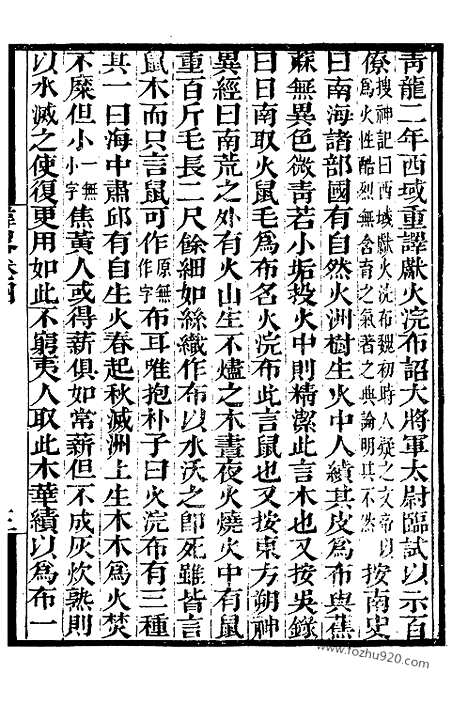 青龍二年西域重譯獻火浣布詔大將軍太尉臨試以示百
僚搜神記曰西域獻火浣布魏初時人疑之文帝以為火性酷烈無含育之氣著之典論明其不然按南史
曰南海諸部國有自然火洲樹生火中人績其皮爲布與蕉
蔴無異色微靑若小垢投火中則精潔此言木也又按吳錄
曰日南取火鼠毛爲布名火浣布此言鼠也又按東方朔神
異經曰南荒之外有火山生不燼之木晝夜火燒火中有鼠
重百斤毛長二尺餘細如絲織作布以水沃之卽死雖皆言
鼠木而只言鼠可作原無作字布耳雅抱朴子曰火浣布有三種
其一曰海中肅邱有自生火春起秋滅洲上生木木爲火焚
不糜但小一無小字焦黃人或得薪俱如常薪但不成灰炊熟則
以水滅之使復更用如此不窮夷人取此木華績以爲布一
www.fozhu920.com